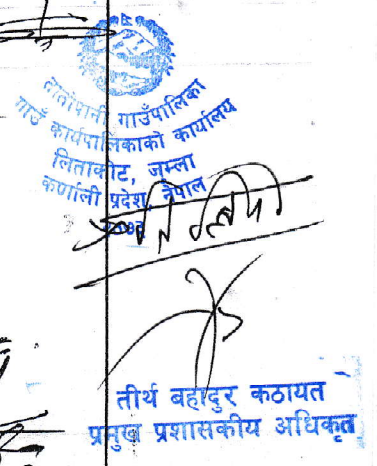 तातोपानी गाउँपालिका
गाउँ कार्यपालिकाको कार्यालय
लिताकोट, जुम्ला
कर्णाली प्रदेश, नेपाल
तीर्थ बहादुर कठायत
प्रमुख प्रशासकीय अधिकृत